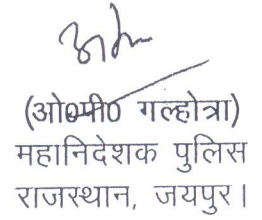 (ओ०पी० गल्होत्रा)
महानिदेशक पुलिस
राजस्थान, जयपुर।